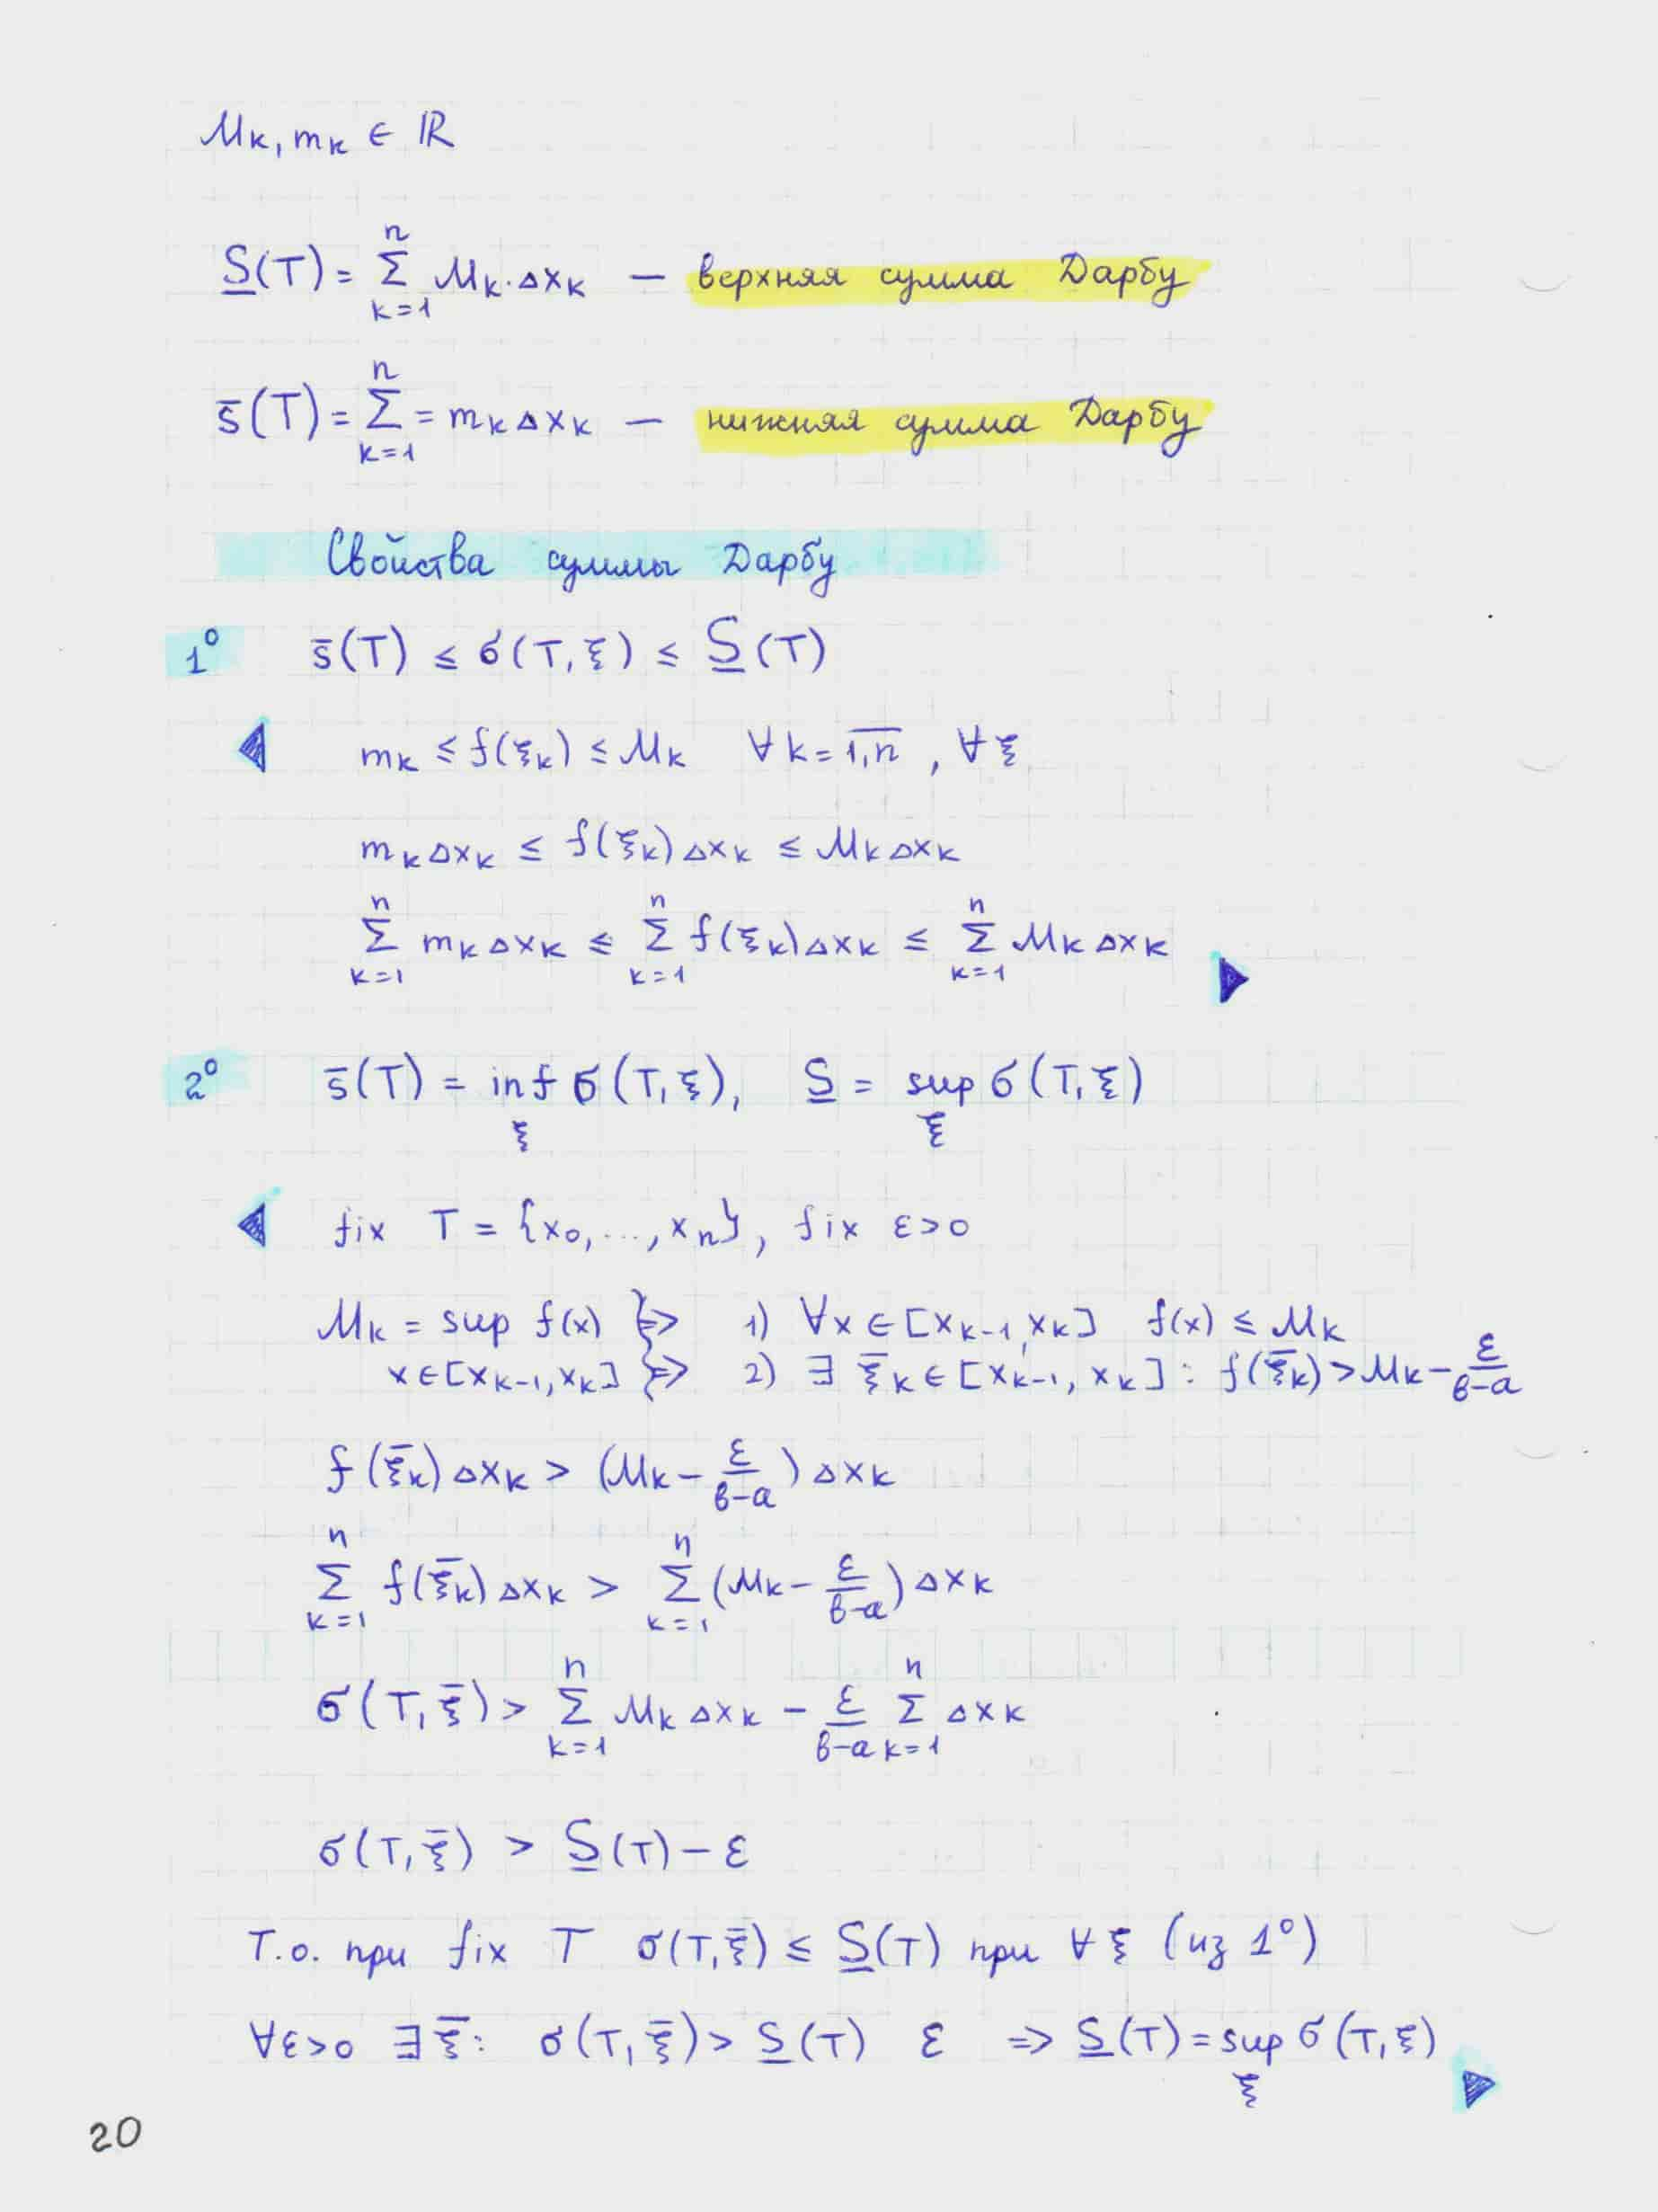 Mₖ, mₖ ∈ ℝ
S̲(T) = ∑ₖ₌₁ⁿ Mₖ·Δxₖ — верхняя сумма Дарбу
s̄(T) = ∑ₖ₌₁ⁿ = mₖΔxₖ — нижняя сумма Дарбу
Свойства суммы Дарбу
1⁰ s̄(T) ≤ σ(T, ξ) ≤ S̲(T)
◀ mₖ ≤ f(ξₖ) ≤ Mₖ ∀k = 1,n̅ , ∀ξ
mₖΔxₖ ≤ f(ξₖ)Δxₖ ≤ MₖΔxₖ
∑ₖ₌₁ⁿ mₖΔxₖ ≤ ∑ₖ₌₁ⁿ f(ξₖ)Δxₖ ≤ ∑ₖ₌₁ⁿ MₖΔxₖ ▶
2⁰ s̄(T) = inf_ξ σ(T, ξ), S̲ = sup_ξ σ(T, ξ)
◀ fix T = {x₀, ..., xₙ}, fix ε>0
Mₖ = sup f(x) } ⇒ 1) ∀x ∈ [xₖ₋₁, xₖ] f(x) ≤ Mₖ
x∈[xₖ₋₁, xₖ] } ⇒ 2) ∃ ξ̄ₖ ∈ [xₖ₋₁, xₖ] : f(ξ̄ₖ) > Mₖ − ε/(b−a)
f(ξ̄ₖ)Δxₖ > (Mₖ − ε/(b−a))Δxₖ
∑ₖ₌₁ⁿ f(ξ̄ₖ)Δxₖ > ∑ₖ₌₁ⁿ (Mₖ − ε/(b−a))Δxₖ
σ(T, ξ̄) > ∑ₖ₌₁ⁿ MₖΔxₖ − ε/(b−a) ∑ₖ₌₁ⁿ Δxₖ
σ(T, ξ̄) > S̲(T) − ε
Т.о. при fix T σ(T, ξ̄) ≤ S̲(T) при ∀ξ (из 1⁰)
∀ε>0 ∃ξ̄: σ(T, ξ̄) > S̲(T) ε ⇒ S̲(T) = sup_ξ σ(T, ξ) ▶
20